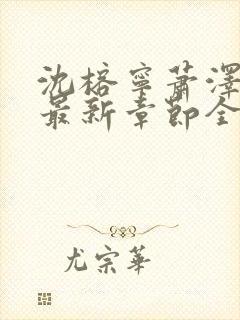 沈榕寧蕭澤
最新章節全
尤宗華